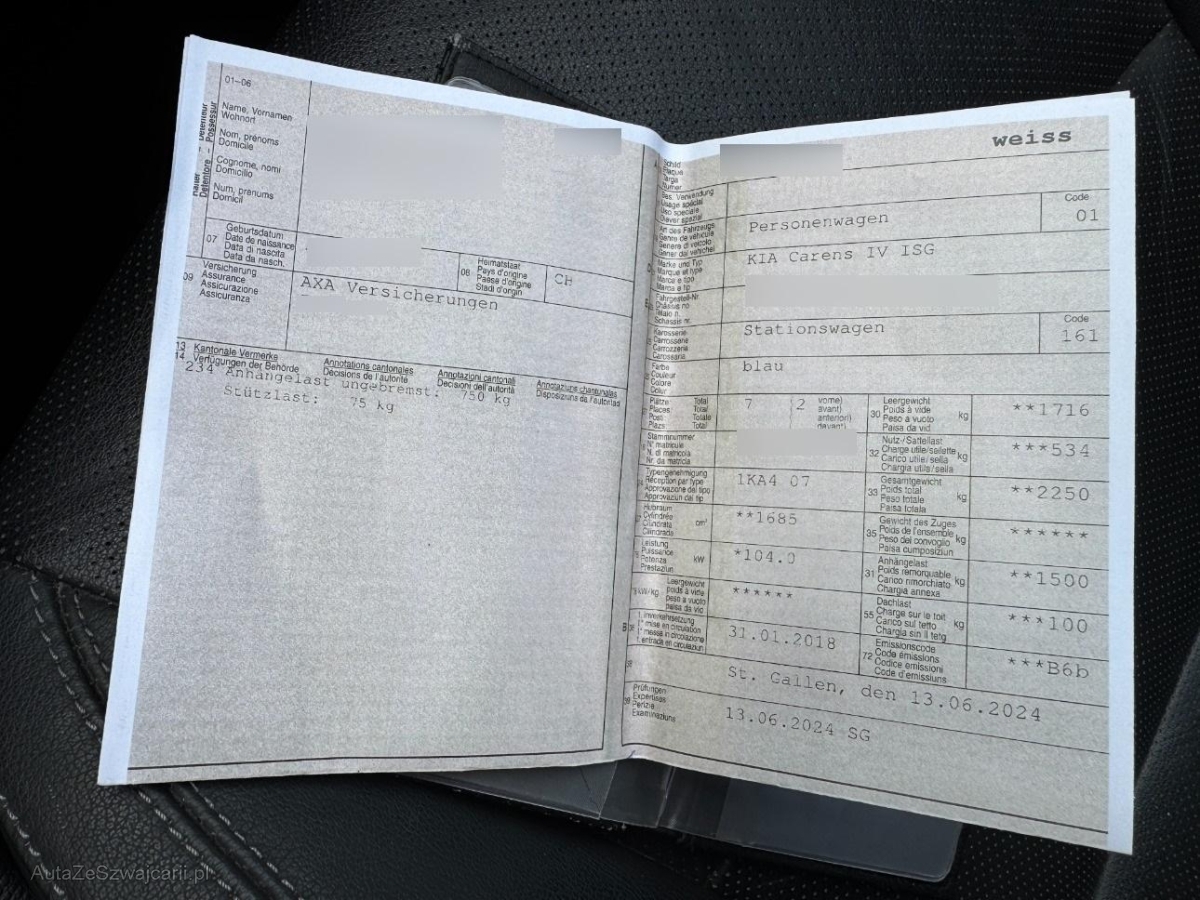 01-06
Name, Vornamen
Wohnort
Nom, prénoms
Domicile
Cognome, nomi
Domicilio
Num, prenums
Domicil
Detenteur
Detentore - Possessur
07
Geburtsdatum
Date de naissance
Data di nascita
Data da nasch.
08
Heimatstaat
Pays d'origine
Paese d'origine
Stadi d'origin
CH
09
Versicherung
Assurance
Assicurazione
Assicuranza
AXA Versicherungen
13 Kantonale Vermerke
14 Verfügungen der Behörde
Annotations cantonales
Décisions de l'autorité
Annotazioni cantonali
Decisioni dell'autorità
Annotaziuns chantunalas
Disposiziuns da l'autoritad
234 Anhängelast ungebremst: 750 kg
Stützlast: 75 kg
Schild
Plaque
Targa
Numer
weiss
Bes. Verwendung
Usage spécial
Uso speciale
Diever spezial
Art des Fahrzeugs
Genre de véhicule
Genere di veicolo
Gener dal vehichel
Personenwagen
Code
01
Marke und Typ
Marque et type
Marca e tipo
Marca e tip
KIA Carens IV ISG
Fahrgestell-Nr
Châssis no
Telaio n.
Schassis nr.
Karosserie
Carrosserie
Carrozzeria
Carossaria
Stationswagen
Code
161
Farbe
Couleur
Colore
Colur
blau
Plätze Total
Places Total
Posti Totale
Plazs Total
7
2
vorne)
avant)
anteriori)
davant)
30
Leergewicht
Poids à vide
Peso a vuoto
Paisa da vid
kg
**1716
Stammnummer
N° matricule
N. di matricola
Nr. da matricla
32
Nutz-/Sattellast
Charge utile/sellette
Carico utile/sella
Chargia utila/sella
kg
***534
Typengenehmigung
Réception par type
Approvazione del tipo
Approvaziun dal tip
1KA4 07
33
Gesamtgewicht
Poids total
Peso totale
Paisa totala
kg
**2250
Hubraum
Cylindrée
Cilindrata
Cilindrada
cm³
**1685
35
Gewicht des Zuges
Poids de l'ensemble
Peso del convoglio
Paisa cumposiziun
kg
******
Leistung
Puissance
Potenza
Prestaziun
kW
*104.0
31
Anhängelast
Poids remorquable
Carico rimorchiato
Chargia annexa
kg
**1500
kW/kg
Leergewicht
poids à vide
peso a vuoto
paisa da vid
******
55
Dachlast
Charge sur le toit
Carico sul tetto
Chargia sin il tetg
kg
***100
B
1. Inverkehrsetzung
1ʳᵉ mise en circulation
1ª messa in circolazione
1. entrada en circulaziun
31.01.2018
72
Emissionscode
Code émissions
Codice emissioni
Code d'emissiuns
***B6b
38
St. Gallen, den 13.06.2024
39
Prüfungen
Expertises
Perizie
Examinaziuns
13.06.2024 SG
AutaZeSzwajcarii.pl